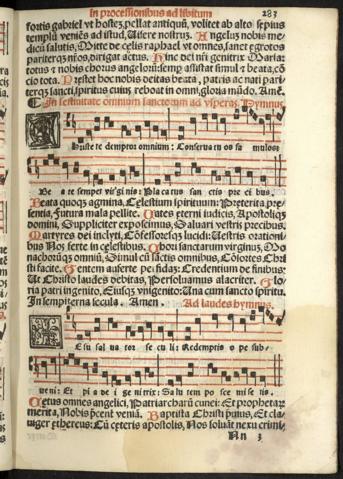 in processionibus ad libitum 283
fortis gabriel vt hostes, pellat antiquus, volitet ab alto sepius
templū veniēs ad istud, Uisere nostruȝ. Angelus nobis me-
dicus salutis, Mitte de celis raphael vt omnes, sanet egrotos
pariterqȝ nr̄os, dirigat actus. Hinc dei nr̄i genitrix Maria:
totus et nobis chorus angeloruȝ: semp assistat simul et beata, cō
cio tota. Prestet hoc nobis deitas beata, patris ac nati pari-
terqȝ sancti, spiritus cuius reboat in omni, gloria mūdo. Amē.
In festiuitate omnium sanctorum ad vesperas. Hymnus.
Christe redemptor omnium: Conserua tuos fa mulos:
Be a te semper vir gi nis: Pla ca tus san ctis pre ci bus.
Beata quoqȝ agmina, Celestium spirituum: Preterita pre-
sentia, Futura mala pellite. Uates eterni iudicis, Apostoliqȝ
domini, Suppliciter exposcimus, Saluari vestris precibus.
Martyres dei inclyti, Cōfessoresqȝ lucidi: Uestris orationi-
bus Nos ferte in celestibus. Chori sanctarum virginuȝ, Mo
nachorūqȝ omniū, Simul cū sāctis omnibus, Cōsortes Chri
sti facite. Gentem auferte perfidaȝ: Credentium de finibus:
Ut Christo laudes debitas, Persoluamus alacriter. Glo-
ria patri ingenito, Eiusqȝ vnigenito: Una cum sancto spiritu.
In sempiterna secula. Amen. Ad laudes hymnus.
Iesu sal ua tor se cu li: Redemptis o pe sub-
ueni: Et pi a de i ge ni trix: Sa lu tem po sce mi se ris.
Cetus omnes angelici, Patriarcharū cunei: Et prophetaȝ
merita, Nobis p̄cent veniā. Baptista Christi p̄uius, Et cla-
uiger ethereus: Cū ceteris apostolis, Nos soluāt nexu crimi,
Nn 3